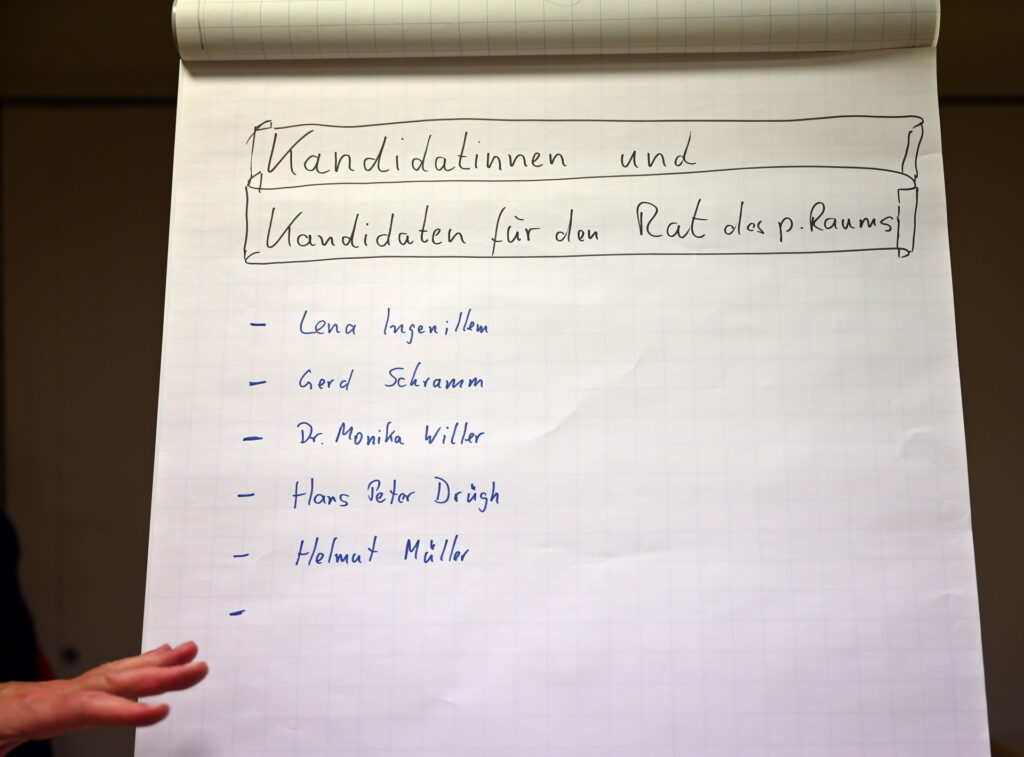 Kandidatinnen und
Kandidaten für den Rat des p. Raums
- Lena Ingenillem
- Gerd Schramm
- Dr. Monika Willer
- Hans Peter Drügh
- Helmut Müller
-